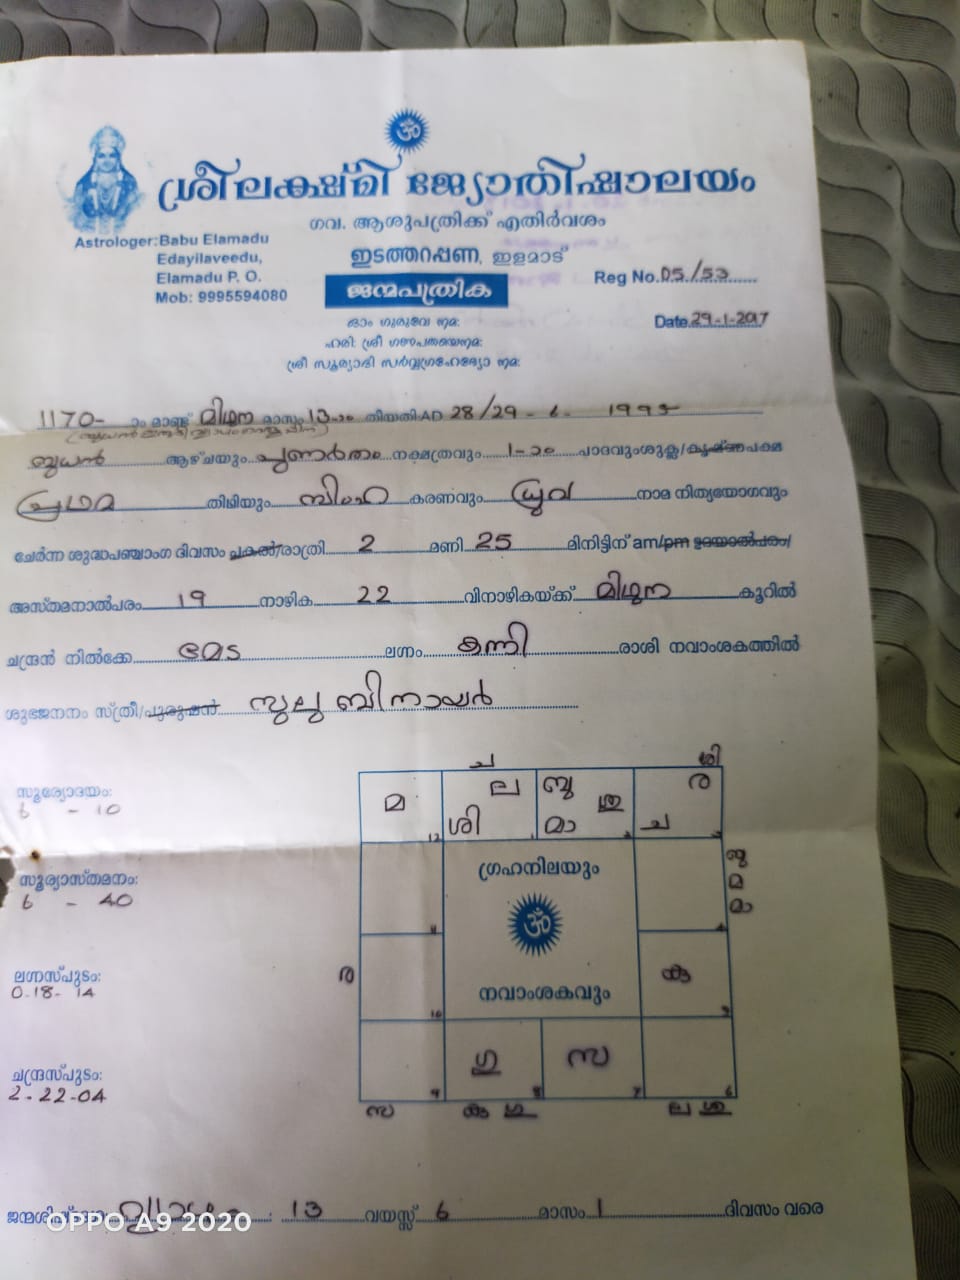 ശ്രീലക്ഷ്മി ജ്യോതിഷാലയം
ഗവ. ആശുപത്രിക്ക് എതിർവശം
Astrologer:Babu Elamadu
Edayilaveedu,
Elamadu P. O.
Mob: 9995594080
ഇടത്തറപ്പണ, ഇളമാട്
Reg No.05/53
ജന്മപത്രിക
Date.29-1-2017
ഓം ഗുരുവേ നമ:
ഹരി: ശ്രീ ഗണപതയെനമ:
ശ്രീ സൂര്യാദി സർവ്വഗ്രഹേഭ്യോ നമ:
1170- ാം മാണ്ട് മിഥുന മാസം 13-ാം തീയതി AD 28/29 - 6 - 1995
ബുധൻ ആഴ്ചയും പുണർതം നക്ഷത്രവും 1-ാം പാദവും ശുക്ല/കൃഷ്ണപക്ഷ
പ്രഥമ തിഥിയും സിംഹ കരണവും ധ്രുവ നാമ നിത്യയോഗവും
ചേർന്ന ശുദ്ധപഞ്ചാംഗ ദിവസം പകൽ/രാത്രി 2 മണി 25 മിനിട്ടിന് am/pm ഉദയാൽപരം/
അസ്തമനാൽപരം 19 നാഴിക 22 വിനാഴികയ്ക്ക് മിഥുന കൂറിൽ
ചന്ദ്രൻ നിൽക്കേ മേട ലഗ്നം കന്നി രാശി നവാംശകത്തിൽ
ശുഭജനനം സ്ത്രീ/പുരുഷൻ സുലു ബി നായർ
സൂര്യോദയം:
6 - 10
സൂര്യാസ്തമനം:
6 - 40
ലഗ്നസ്പുടം:
0-18-14
ചന്ദ്രസ്പുടം:
2-22-04
ച ശി
മ ല ബു ശു ര
ശി മാ ച
12 1 2 3
ഗ്രഹനിലയും
ബു
മ
മാ
11 4
ര കു
നവാംശകവും
10 5
ഗു സ
9 8 7 6
സ കു ഗു ല ശു
13 വയസ്സ് 6 മാസം 1 ദിവസം വരെ
OPPO A9 2020